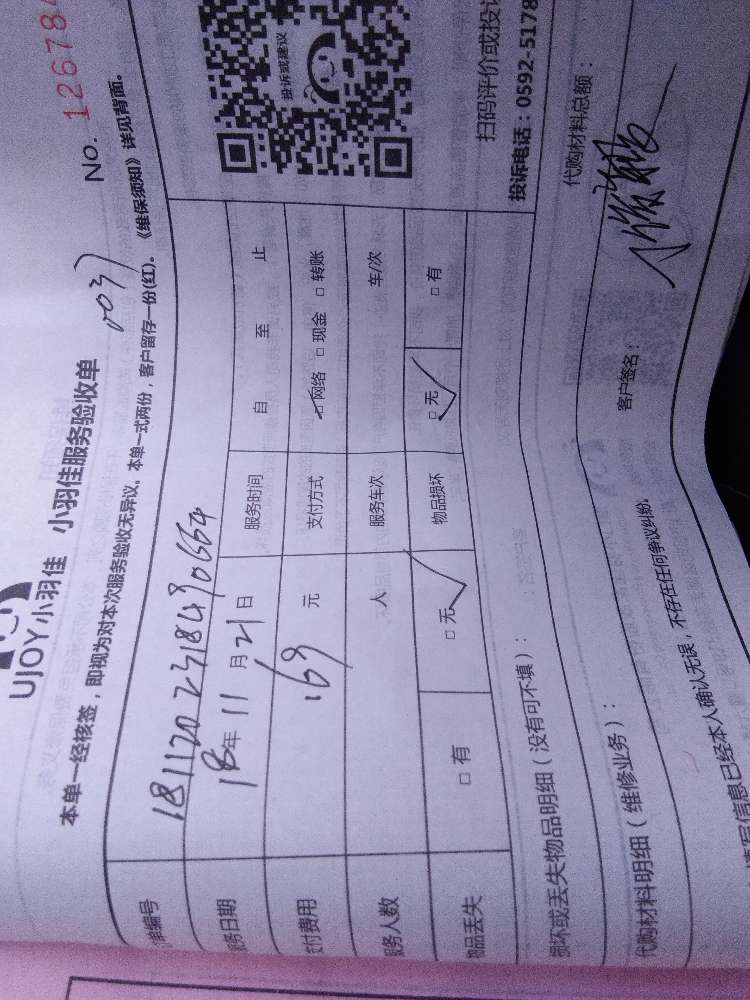 UJOY小羽佳 小羽佳服务验收单
0037 No. 12678
本单一经核签，即视为对本次服务验收无异议。本单一式两份，客户留存一份(红)。《维保须知》详见背面。
单编号 1811202318490664
服务日期 18年11月21日 服务时间 自 至 止
支付费用 169元 支付方式 □网络 □现金 □转账
服务人数 人 服务车次 车/次
物品丢失 □有 □无 物品损坏 □无 □有
投诉或建议
扫码评价或投诉
投诉电话：0592-5178
损坏或丢失物品明细（没有可不填）：
代购材料明细（维修业务）： 代购材料总额：
填写信息已经本人确认无误，不存在任何争议纠纷。 客户签名：